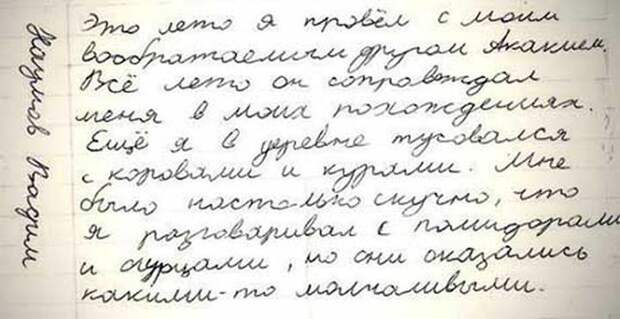 Наумов Вадим
Это лето я провёл с моим
воображаемым другом Акакием.
Всё лето он сопровждал
меня в моих похождениях.
Ещё я в деревне тусовался
с коровами и курями. Мне
было настолько скучно, что
я разговаривал с помидорами
и огурцами, но они оказались
какими-то молчаливыми.